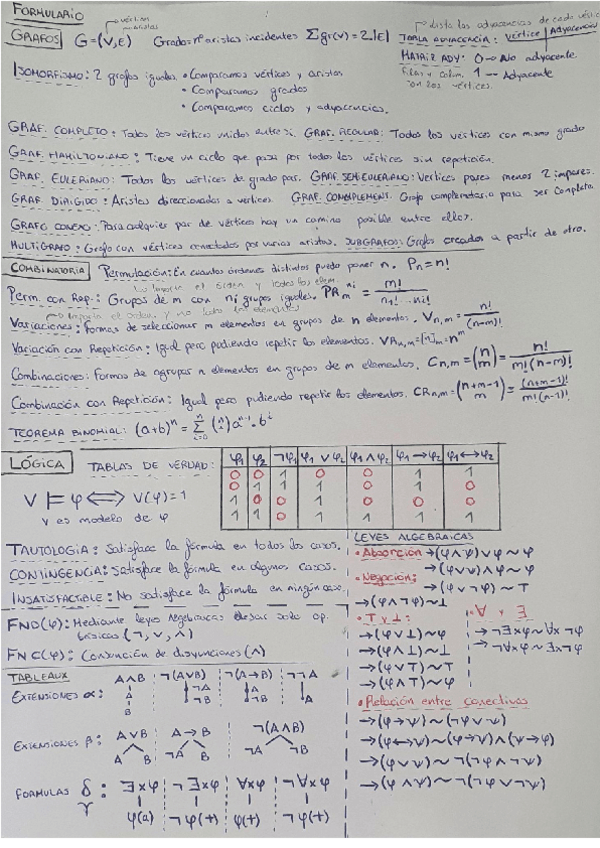 FORMULARIO
GRAFOS G=(V,E) Grado=nº aristas incidentes Σgr(v)=2.|E|
vértices
aristas
→ dista las adyacencias de cada vértice
TABLA ADYACENCIA: Vértice | Adyacencia
MATRIZ ADY: 0 → No adyacente
filas y colum. 1 → Adyacente
son los vértices.
ISOMORFISMO: 2 grafos iguales. • Comparamos vértices y aristas
• Comparamos grados
• Comparamos ciclos y adyacencias.
GRAF. COMPLETO: Todos los vértices unidos entre si. GRAF. REGULAR: Todos los vértices con mismo grado
GRAF. HAMILTONIANO: Tiene un ciclo que pasa por todos los vértices sin repetición.
GRAF. EULERIANO: Todos los vértices de grado par. GRAF. SEMIEULERIANO: Vertices pares menos 2 impares.
GRAF. DIRIGIDO: Aristas direccionadas a vertices. GRAF. COMPLEMENT. Grafo complementario para ser Completo.
GRAFO CONEXO: Para cualquier par de vértices hay un camino posible entre ellos.
MULTIGRAFO: Grafo con vértices conectados por varias aristas. SUBGRAFOS: Grafos creados a partir de otro.
COMBINATORIA Permutación: En cuantos órdenes distintos puedo poner n. Pn = n!
importa el orden y todos los elem.
Perm. con Rep.: Grupos de m con ni grupos iguales. PR m ni = m! / n1!...ni!
importa el orden y no todos los elementos
Variaciones: Formas de seleccionar m elementos en grupos de n elementos. Vn,m = n! / (n-m)!
Variación con Repetición: Igual pero pudiendo repetir los elementos. VRn,m = [n]m = n^m
Combinaciones: Formas de agrupar n elementos en grupos de m elementos. Cn,m = (n m) = n! / m!(n-m)!
Combinación con Repetición: Igual pero pudiendo repetir los elementos. CRn,m = (n+m-1 m) = (n+m-1)! / m!(n-1)!
TEOREMA BINOMIAL: (a+b)^n = Σ i=0 n (n i) a^n-i . b^i
LÓGICA TABLAS DE VERDAD:
φ1 φ2 ¬φ1 φ1∨φ2 φ1∧φ2 φ1→φ2 φ1↔φ2
0 0 1 0 0 1 1
0 1 1 1 0 1 0
1 0 0 1 0 0 0
1 1 0 1 1 1 1
V ⊨ φ ⟺ V(φ)=1
v es modelo de φ
TAUTOLOGIA: Satisface la fórmula en todos los casos.
CONTINGENCIA: Satisface la fórmula en algunos casos.
INSATISFACTIBLE: No satisface la fórmula en ningún caso.
FND(φ): Mediante leyes algebraicas dejar solo op.
básicas (¬, ∨, ∧)
FNC(φ): Conjunción de disyunciones (∧)
TABLEAUX
EXTENSIONES α: A∧B | ¬(A∨B) | ¬(A→B) | ¬¬A
A ¬A A A
B ¬B ¬B
EXTENSIONES β: A∨B | A→B | ¬(A∧B)
A B ¬A B ¬A ¬B
FORMULAS δ γ: ∃xφ | ¬∃xφ | ∀xφ | ¬∀xφ
φ(a) ¬φ(t) φ(t) ¬φ(t)
LEYES ALGEBRAICAS
• Absorción → (φ∧ψ)∨φ ~ φ
→ (φ∨ψ)∧φ ~ φ
• Negación:
→ (φ∨¬φ) ~ ⊤
→ (φ∧¬φ) ~ ⊥
→ (φ∨⊥) ~ φ
→ (φ∧⊥) ~ ⊥
→ (φ∨⊤) ~ ⊤
→ (φ∧⊤) ~ φ
∃ x ∀:
→ ¬∃xφ ~ ∀x¬φ
→ ¬∀xφ ~ ∃x¬φ
• Relación entre conectivas
→ (φ→ψ) ~ (¬φ∨ψ)
→ (φ↔ψ) ~ (φ→ψ)∧(ψ→φ)
→ (φ∨ψ) ~ ¬(¬φ∧¬ψ)
→ (φ∧ψ) ~ ¬(¬φ∨¬ψ)